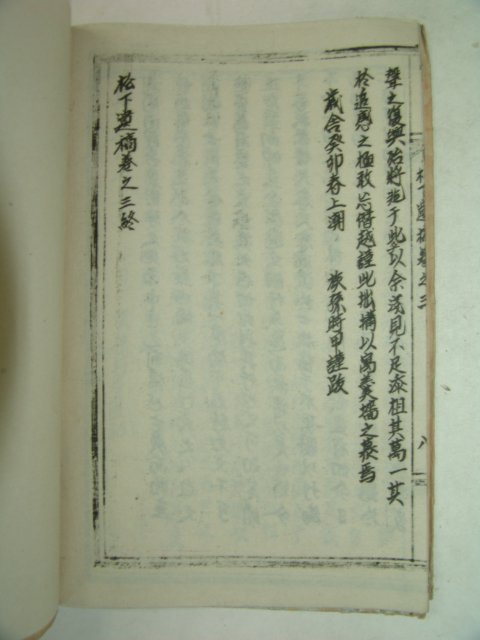 葉之復興殆將兆于此以余淺見不足添祖其萬一其
於追慕之極敢忘僭越謹此拙構以寓羹墻之慕焉
歲舍癸卯春上潮 族孫時甲謹跋
松下遺稿卷之三終
松下遺稿卷之三 八